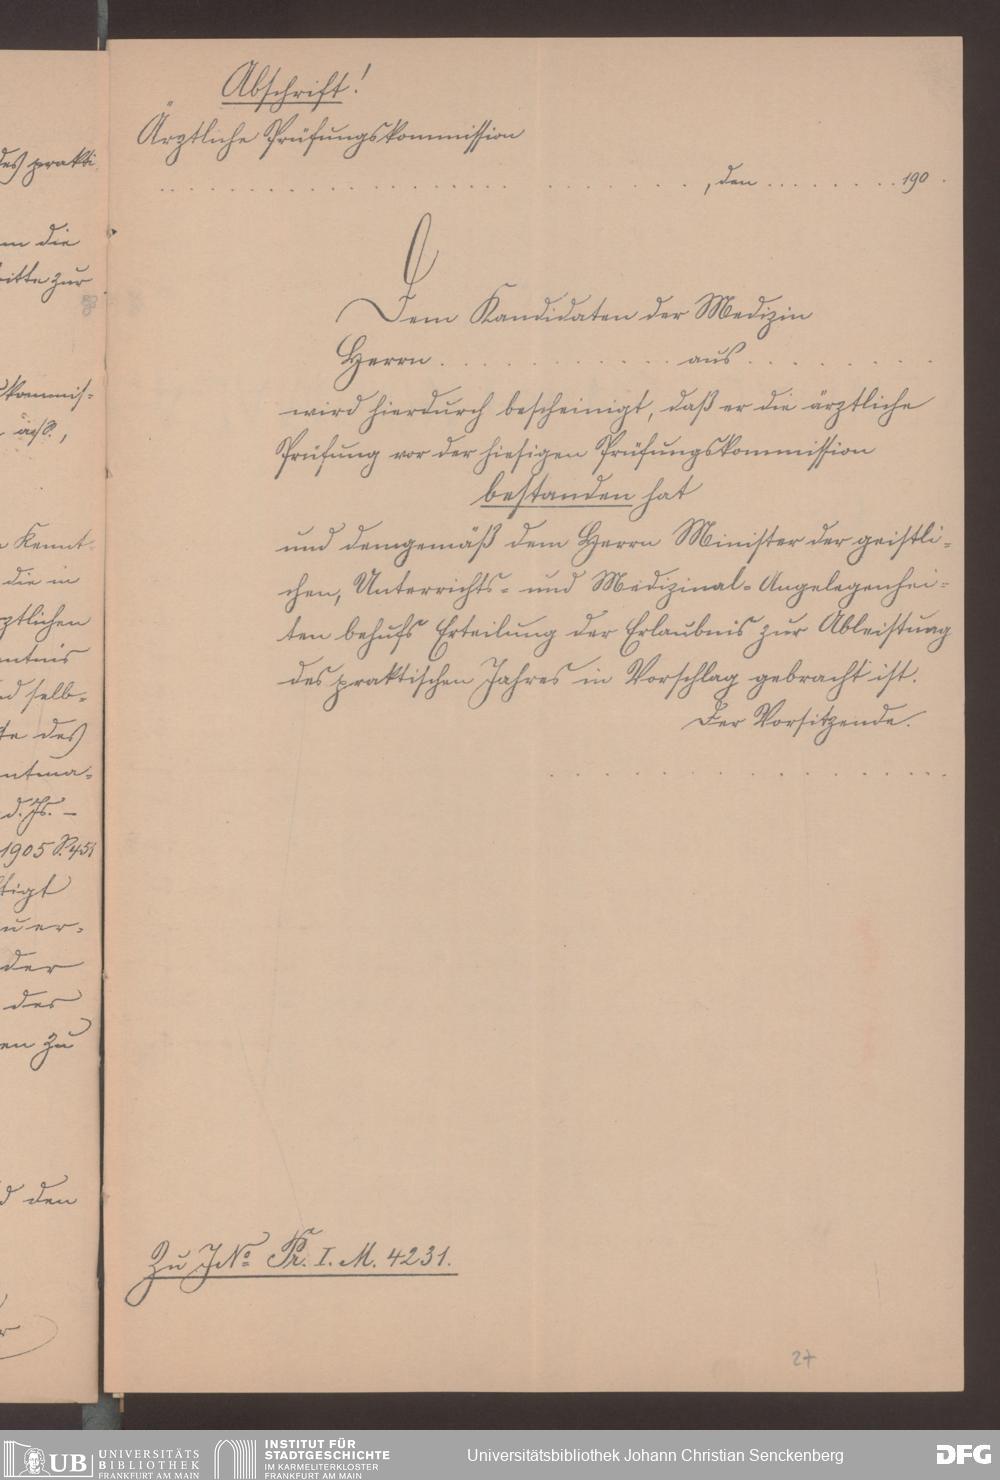 Abschrift!
Ärztliche Prüfungskommission
, den ........ 190 .
Dem Kandidaten der Medizin
Herrn ............ aus ..........
wird hierdurch bescheinigt, daß er die ärztliche
Prüfung vor der hiesigen Prüfungskommission
bestanden hat
und demgemäß dem Herrn Minister der geistli-
chen, Unterrichts- und Medizinal-Angelegenhei-
ten behufs Erteilung der Erlaubnis zur Ableistung
des praktischen Jahres in Vorschlag gebracht ist.
Der Vorsitzende.
Zu JNo Pr. I. M. 4231.
27
des prakti
die
bitte zur
kommis-
Kennt-
die in
ärztlichen
selb-
des
d. Js. –
1905 S. 451
der
des
zu
den
UB UNIVERSITÄTS
BIBLIOTHEK
FRANKFURT AM MAIN
INSTITUT FÜR
STADTGESCHICHTE
IM KARMELITERKLOSTER
FRANKFURT AM MAIN
Universitätsbibliothek Johann Christian Senckenberg
DFG